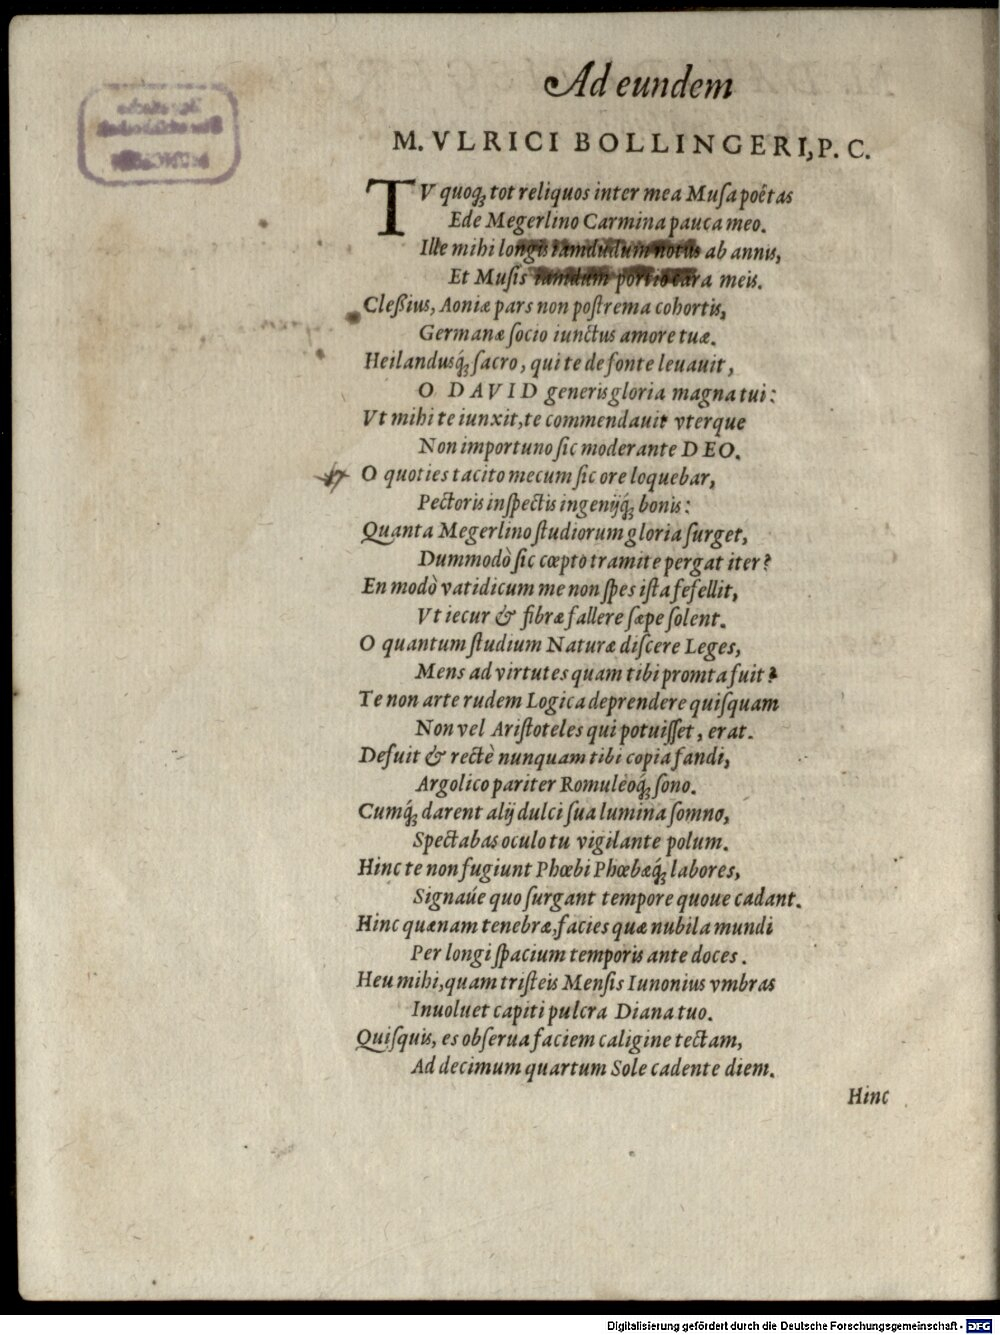 Ad eundem
M. VLRICI BOLLINGERI, P. C.
TV quoq; tot reliquos inter mea Muſa poëtas
Ede Megerlino Carmina pauca meo.
Ille mihi longis iamdudum notus ab annis,
Et Muſis iamdum portio cara meis.
Cleßius, Aoniæ pars non poſtrema cohortis,
Germanæ ſocio iunctus amore tuæ.
Heilandusq́; ſacro, qui te de fonte leuauit,
O DAVID generis gloria magna tui:
Vt mihi te iunxit, te commendauit vterque
Non importuno ſic moderante DEO.
O quoties tacito mecum ſic ore loquebar,
Pectoris inſpectis ingenijq́; bonis:
Quanta Megerlino ſtudiorum gloria ſurget,
Dummodò ſic cœpto tramite pergat iter?
En modò vatidicum me non ſpes iſta fefellit,
Vt iecur & fibræ fallere ſæpe ſolent.
O quantum ſtudium Naturæ diſcere Leges,
Mens ad virtutes quam tibi promta fuit?
Te non arte rudem Logica deprendere quiſquam
Non vel Ariſtoteles qui potuiſſet, erat.
Defuit & rectè nunquam tibi copia fandi,
Argolico pariter Romuleoq́; ſono.
Cumq́; darent alij dulci ſua lumina ſomno,
Spectabas oculo tu vigilante polum.
Hinc te non fugiunt Phœbi Phœbæq́; labores,
Signaúe quo ſurgant tempore quoue cadant.
Hinc quænam tenebræ, facies quæ nubila mundi
Per longi ſpacium temporis ante doces.
Heu mihi, quam triſteis Menſis Iunonius vmbras
Inuoluet capiti pulcra Diana tuo.
Quiſquis, es obſerua faciem caligine tectam,
Ad decimum quartum Sole cadente diem.
Hinc
Digitalisierung gefördert durch die Deutsche Forschungsgemeinschaft - DFG